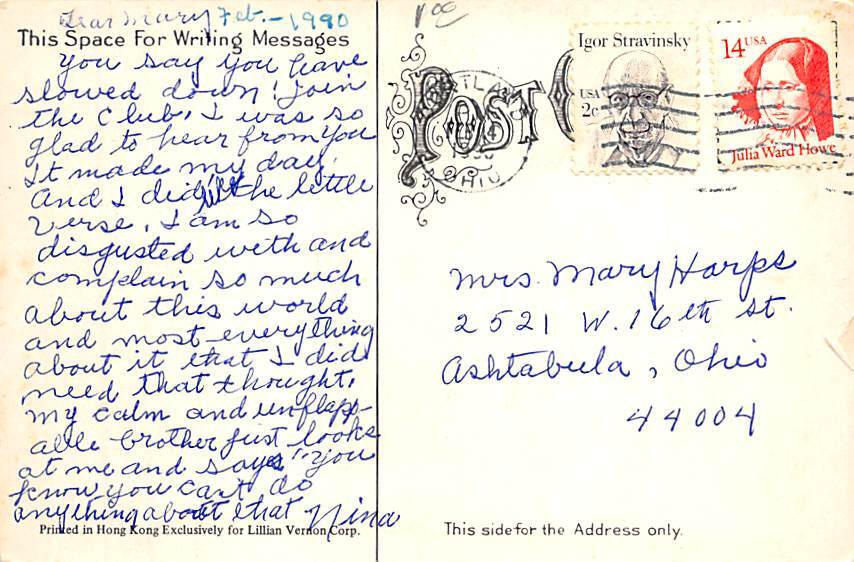 Dear Mary Feb. - 1990
This Space For Writing Messages
You say you have
slowed down! Join
the Club, I was so
glad to hear from you
It made my day.
And I did the little
verse, I am so
disgusted with and
complain so much
about this world
and most everything
about it that I did
need that thought,
my calm and unflapp-
able brother just looks
at me and says "you
know you can't do
anything about that Nina
Printed in Hong Kong Exclusively for Lillian Vernon Corp.
POST
OHIO
Igor Stravinsky
USA
2c
14 USA
Julia Ward Howe
Mrs. Mary Harps
2521 W. 16th St.
Ashtabula, Ohio
44004
This side for the Address only.